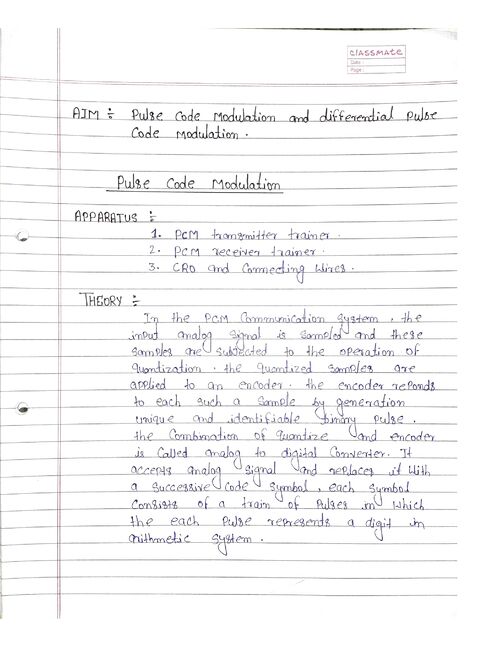 CLASSMATE
Date :
Page :
AIM :- Pulse Code Modulation and differential pulse
Code Modulation.
Pulse Code Modulation
APPARATUS :-
1. PCM transmitter trainer.
2. PCM receiver trainer.
3. CRO and Connecting Wires.
THEORY :-
In the PCM Communication System, the
input analog signal is sampled and these
samples are subjected to the operation of
quantization. the quantized samples are
applied to an encoder. the encoder reponds
to each such a sample by generation
unique and identifiable binary pulse.
the Combination of quantize and encoder
is Called analog to digital Converter. It
accepts analog signal and replaces it With
a successive code symbol, each symbol
Consists of a train of Pulses in Which
the each Pulse represents a digit in
arithmetic system.